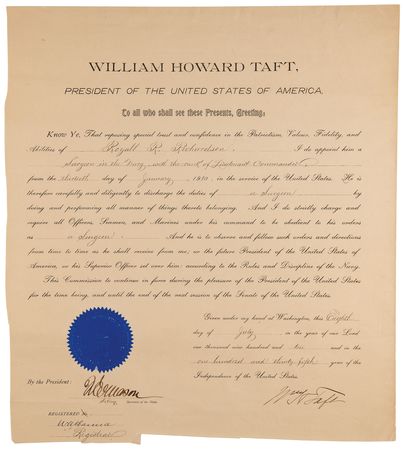 WILLIAM HOWARD TAFT,
PRESIDENT OF THE UNITED STATES OF AMERICA.
To all who shall see these Presents, Greeting:
Know Ye, That reposing special trust and confidence in the Patriotism, Valour, Fidelity, and
Abilities of Regall R. Richardson I do appoint him a
Surgeon in the Navy, with the rank of Lieutenant Commander
from the thirtieth day of January, 1910, in the service of the United States. He is
therefore carefully and diligently to discharge the duties of a Surgeon by
doing and performing all manner of things thereto belonging. And I do strictly charge and
require all Officers, Seamen, and Marines under his command to be obedient to his orders
as a Surgeon. And he is to observe and follow such orders and directions
from time to time as he shall receive from me, or the future President of the United States
of America, or his Superior Officer set over him, according to the Rules and Discipline of the Navy.
This Commission to continue in force during the pleasure of the President of the United States
for the time being, and until the end of the next session of the Senate of the United States.
Given under my hand at Washington, this Eighth
day of July in the year of our Lord
one thousand nine hundred and ten and in the
one hundred and thirty fifth year of the
Independence of the United States.
By the President:
Acting Secretary of the Navy.
Wm H Taft
REGISTERED
Registrar